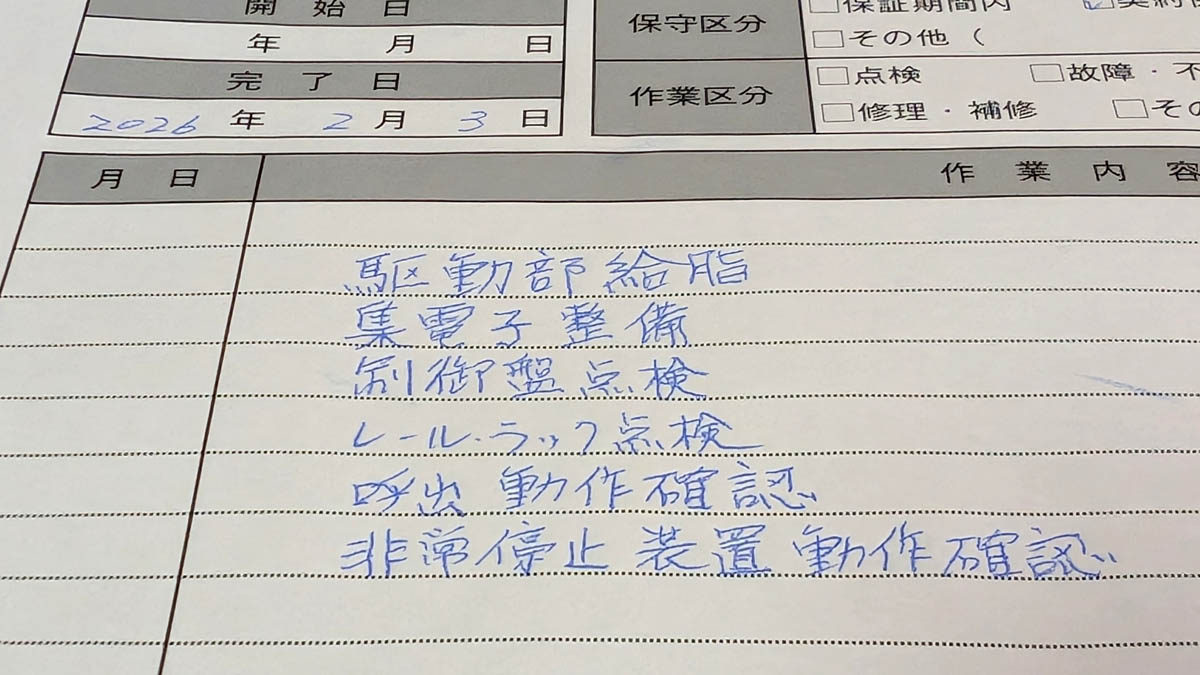 開始日
年 月 日
完了日
2026年 2月 3日
保守区分
□保証期間内
□その他（
作業区分
□点検 □故障・不
□修理・補修 □その
月日 作業内容
駆動部給脂
集電子整備
制御盤点検
レール・ラック点検
呼出動作確認
非常停止装置動作確認